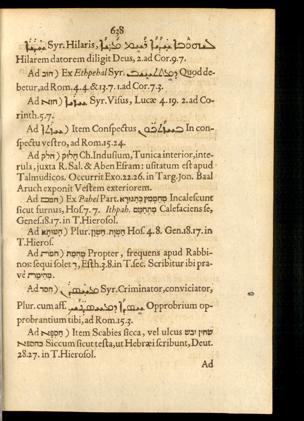 638
Syr. Hilaris,
Hilarem datorem diligit Deus, 2. ad Cor. 9. 7.
Ad חוב) Ex Ethpehal Syr. Quod de-
betur, ad Rom. 4. 4. & 13. 7. 1. ad Cor. 7. 3.
Ad חוא) Syr. Visus, Lucæ 4. 19. 2. ad Co-
rinth. 5. 7.
Ad) Item Conspectus In con-
spectu vestro, ad Rom. 15. 24.
Ad חלק) חלוק Ch. Indusium, Tunica interior, inte-
rula, juxta R. Sal. & Aben Esram: usitatum est apud
Talmudicos. Occurrit Exo. 22. 26. in Targ. Jon. Baal
Aruch exponit Vestem exteriorem.
Ad חמם) Ex Pahel Part. Incalescunt
sicut furnus, Hos. 7. 7. Ithpah. Calefaciens se,
Genes. 18. 17. in T. Hierosol.
Ad) Plur. Hos. 4. 8. Gen. 18. 17. in
T. Hierosol.
Ad) Propter, frequens apud Rabbi-
nos: sequi solet ד, Esth. 3. 8. in T. sec. Scribitur ibi pra-
vè
Ad חסד) Syr. Criminator, conviciator,
Plur. cum aff. Opprobrium op-
probrantium tibi, ad Rom. 15. 3.
Ad חספא) Item Scabies sicca, vel ulcus שחין יבש
כחספא Siccum sicut testa, ut Hebræi scribunt, Deut.
28. 27. in T. Hierosol.
Ad